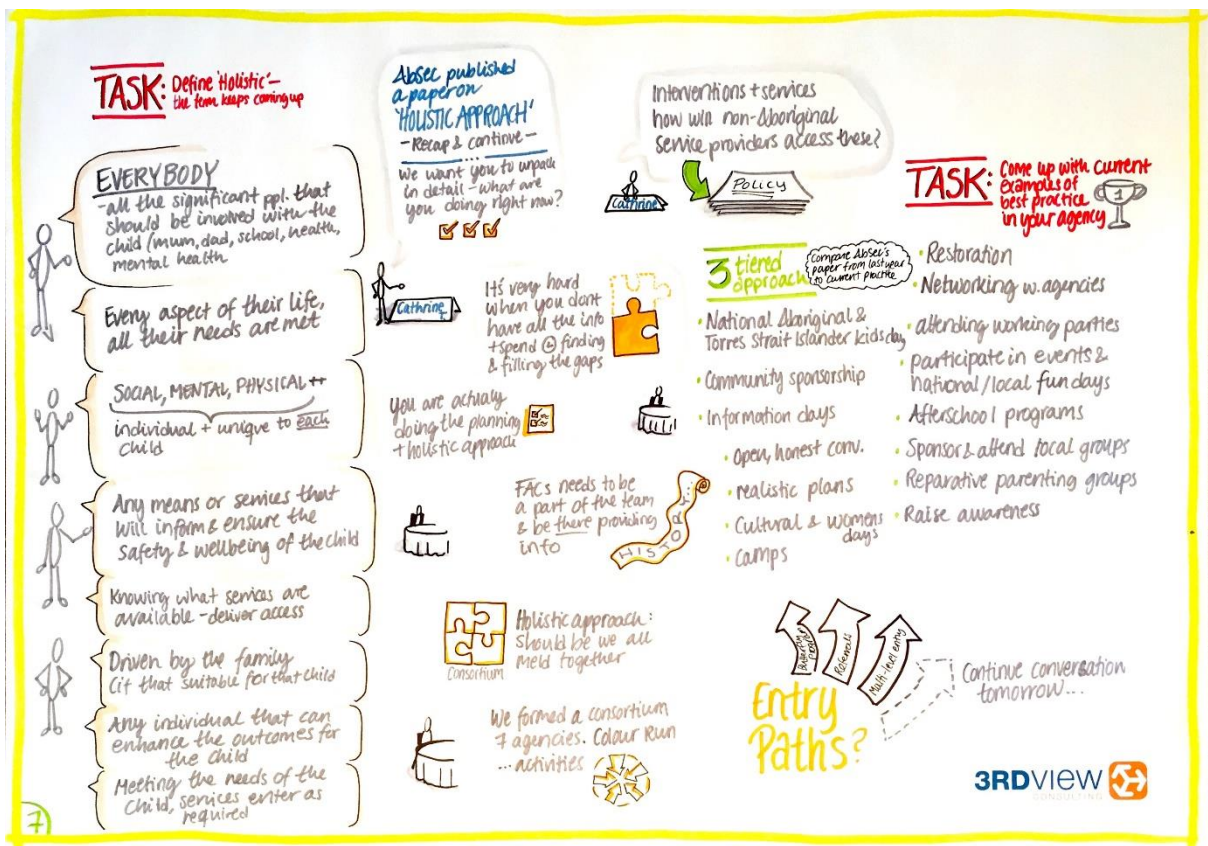 TASK: Define 'Holistic' –
the term keeps coming up
EVERYBODY
- all the significant ppl. that
should be involved with the
child (mum, dad, school, health,
mental health
Every aspect of their life,
all their needs are met
SOCIAL, MENTAL, PHYSICAL ++
individual + unique to each
child
Any means or services that
will inform & ensure the
safety & wellbeing of the child
Knowing what services are
available - deliver access
Driven by the family
(if that suitable for that child
Any individual that can
enhance the outcomes for
the child
Meeting the needs of the
child, services enter as
required
7
AbSec published
a paper on
'HOLISTIC APPROACH'
- Recap & continue -
...
We want you to unpack
in detail - what are
you doing right now?
Cathrine
It's very hard
when you dont
have all the info
+ spend finding
& filling the gaps
You are actualy
doing the planning
+ holistic approach
FACs needs to be
a part of the team
& be there providing
info
HISTORY...
Consortium
Holistic approach:
should be we all
meld together
We formed a consortium
7 agencies. Colour Run
... activities
Interventions + services
how will non-Aboriginal
service providers access these?
Cathrine
POLICY
3 tiered
approach
Compare AbSec's
paper from last year
to current practice
• National Aboriginal &
Torres Strait Islander kids day
• Community sponsorship
• Information days
• Open, honest conv.
• realistic plans
• Cultural & womens
days
• camps
TASK: Come up with current
examples of
best practice
in your agency
1
• Restoration
• Networking w. agencies
• attending working parties
• participate in events &
national/local fun days
• Afterschool programs
• Sponsor & attend local groups
• Reparative parenting groups
• Raise awareness
Referrals
Multi-level entry
Entry
Paths?
Continue conversation
tomorrow...
3RDVIEW
CONSULTING